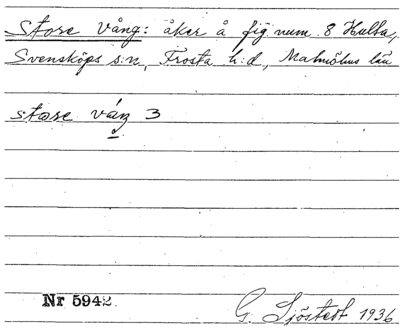 Store Vång: åker å fig num 8 Hallsa,
Svensköps s:n, Frosta h:d, Malmöhus län
store váŋ 3
Nr 5942
G. Sjöstedt 1936